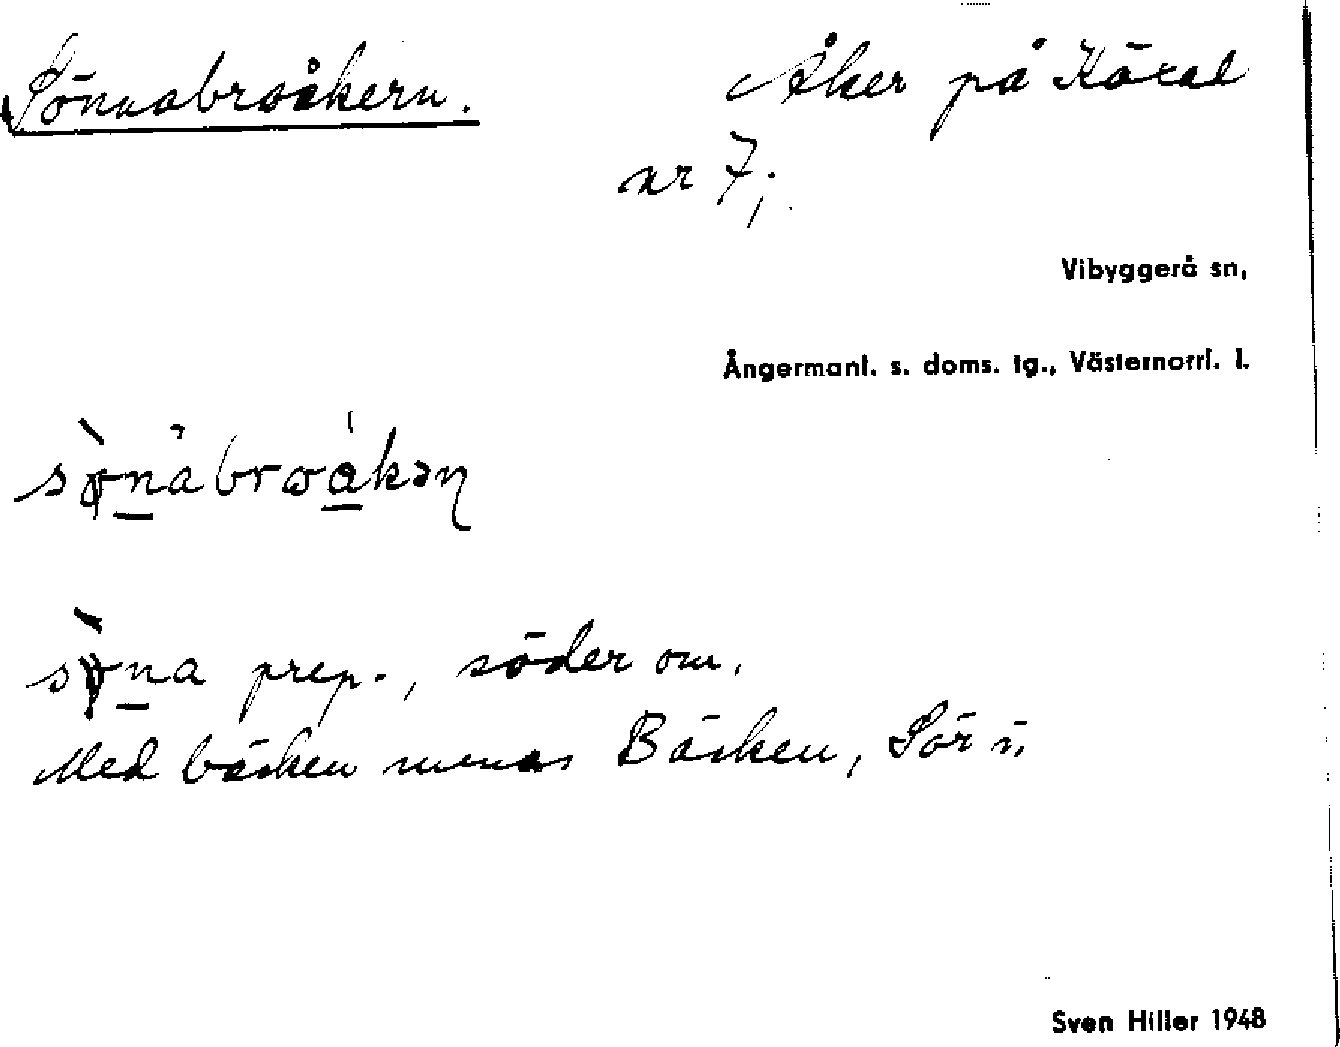 Sönnabroåkern.
Åker på Käxed
nr 7;
Vibyggerå sn,
Ångermanl. s. doms. tg., Västernorrl. l.
sönabroåkən
söna prep., söder om.
Med bäcken menas Bäcken, Sör i,
Sven Hiller 1948